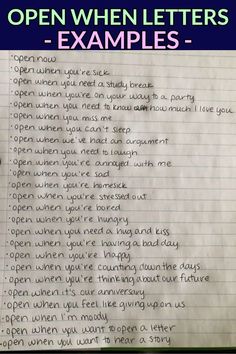 OPEN WHEN LETTERS
- EXAMPLES -
• open now
• open when you're sick
• open when you need a study break
• open when you're on your way to a party
• open when you need to know how much I love you
• open when you miss me
• open when you can't sleep
• open when we've had an argument
• open when you need to laugh
• open when you're annoyed with me
• open when you're sad
• open when you're homesick
• open when you're stressed out
• open when you're bored
• open when you're hungry
• open when you need a hug and kiss
• open when you're having a bad day
• open when you're happy
• open when you're counting down the days
• open when you're thinking about our future
• open when it's our anniversary
• open when you feel like giving up on us
• open when I'm moody
• open when you want to open a letter
• open when you want to hear a story